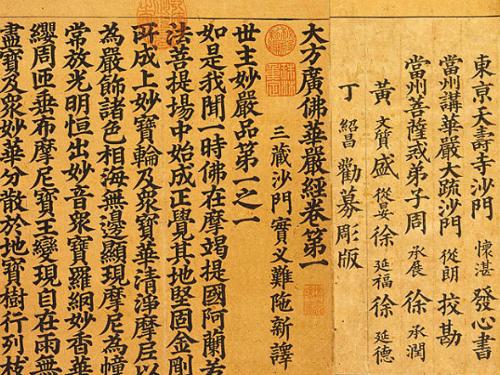 東京天壽寺沙門 懷湛 發心書
當州講華嚴大疏沙門 從朗 挍勘
當州菩薩戒弟子周 承展 徐 承潤
黃 文質 盛 從晏 徐 延福 徐 延德
丁 紹昌 勸募彫版
大方廣佛華嚴經卷第一
三藏沙門實叉難陁新譯
世主妙嚴品第一之一
如是我聞一時佛在摩竭提國阿蘭若
法菩提場中始成正覺其地堅固金剛
所成上妙寶輪及衆寶華清淨摩尼以
為嚴飾諸色相海無邊顯現摩尼為幢
常放光明恒出妙音衆寶羅網妙香華
纓周匝垂布摩尼寶王變現自在雨無
盡寶及衆妙華分散於地寶樹行列枝